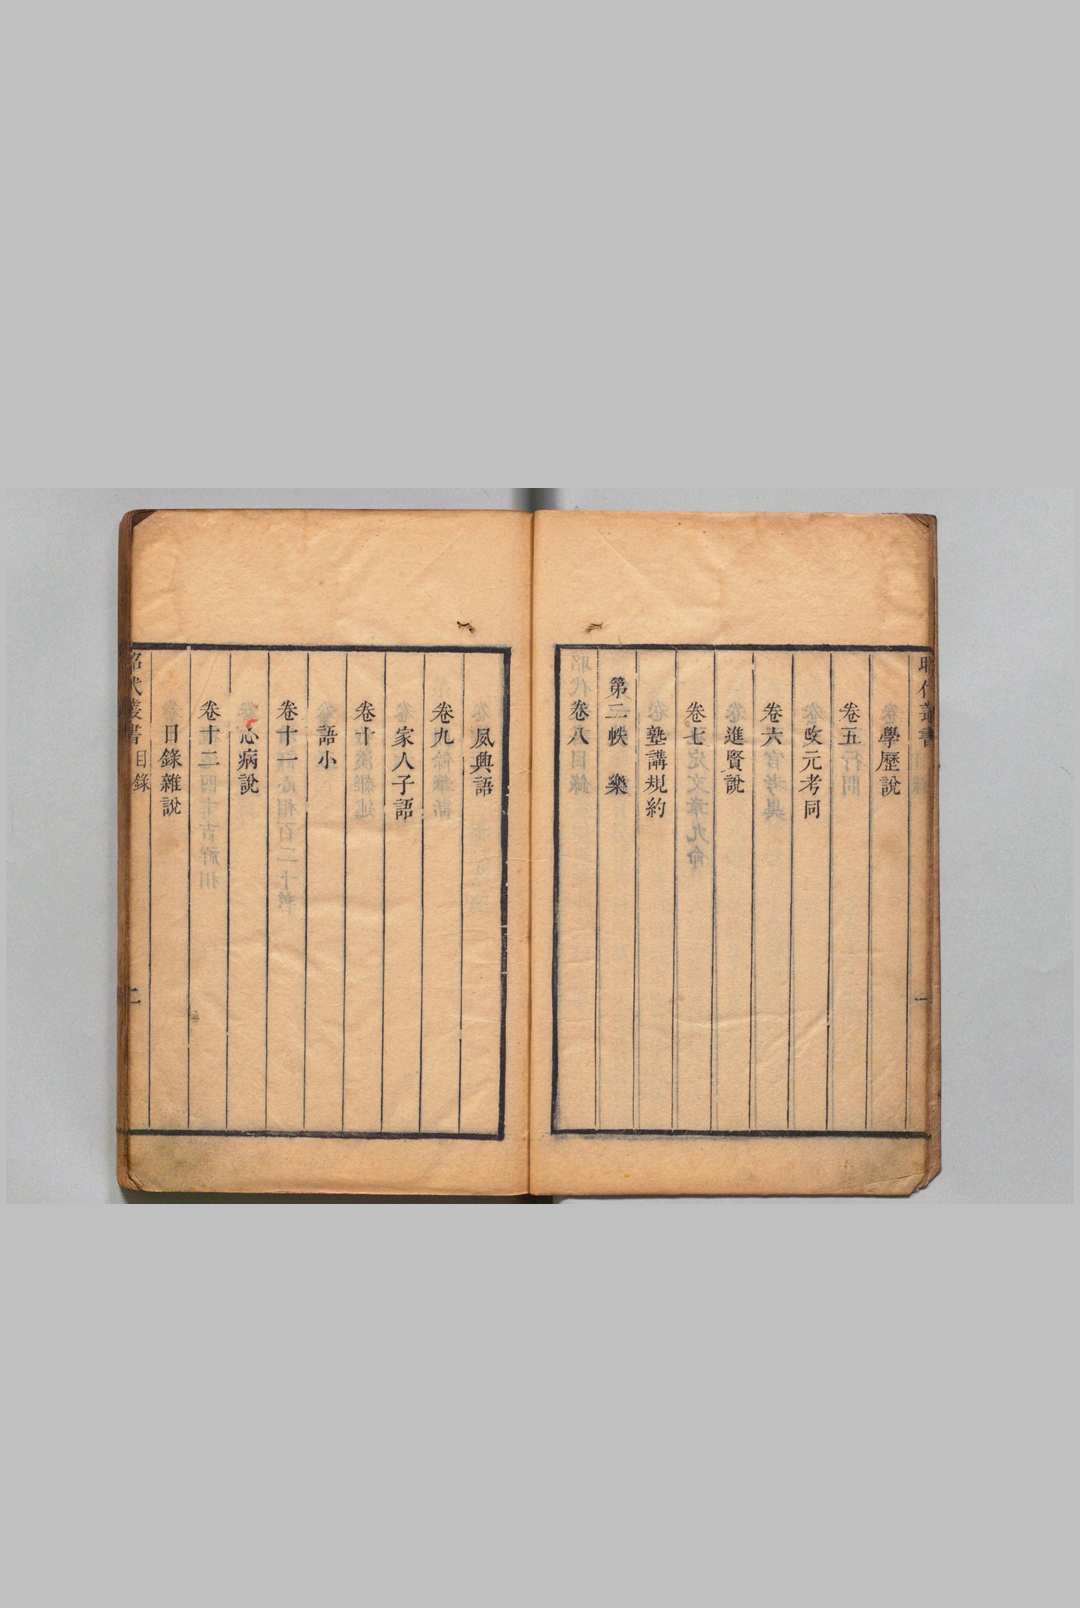 學歷說
卷五
改元考同
卷六
進賢說
卷七
塾講規約
第二帙 樂
卷八
夙興語
卷九
家人子語
卷十
語小
卷十一
心病說
卷十二
日錄雜說
昭代叢書 目錄 二